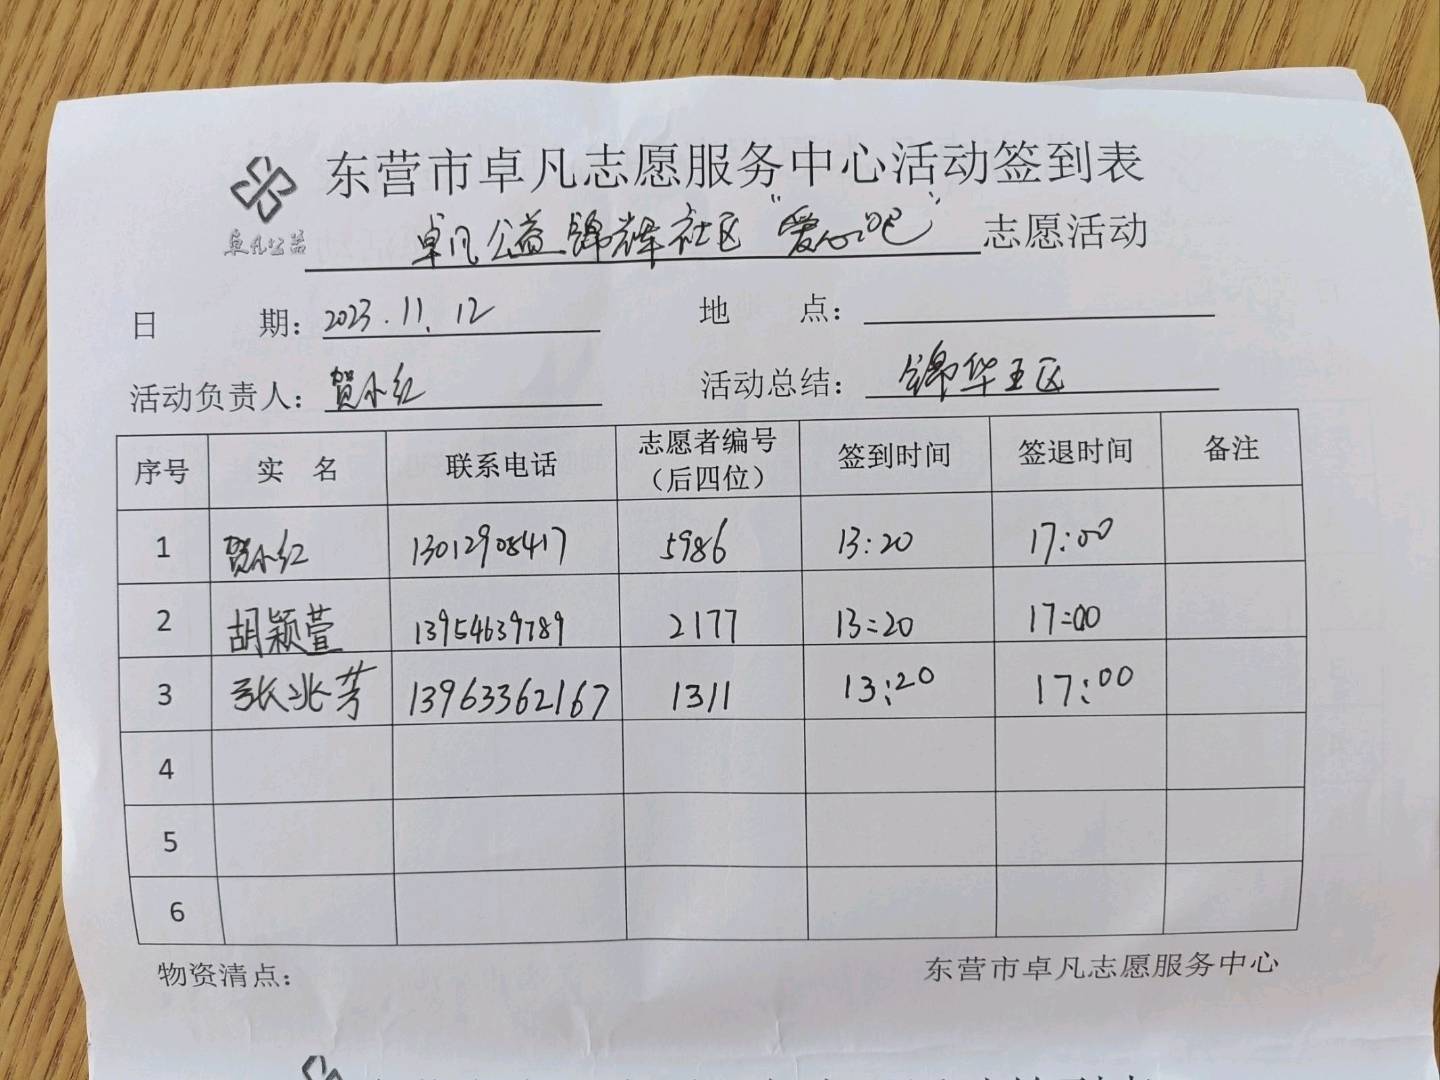 东营市卓凡志愿服务中心活动签到表
卓凡公益
卓凡公益锦辉社区“爱心吧”志愿活动
日 期：2023.11.12 地 点：
活动负责人：贺小红 活动总结：锦华五区
序号 实 名 联系电话 志愿者编号（后四位） 签到时间 签退时间 备注
1 贺小红 13012908417 5986 13:20 17:00
2 胡颖萱 13954639789 2177 13:20 17:00
3 张兆芳 13963362167 1311 13:20 17:00
4
5
6
物资清点： 东营市卓凡志愿服务中心